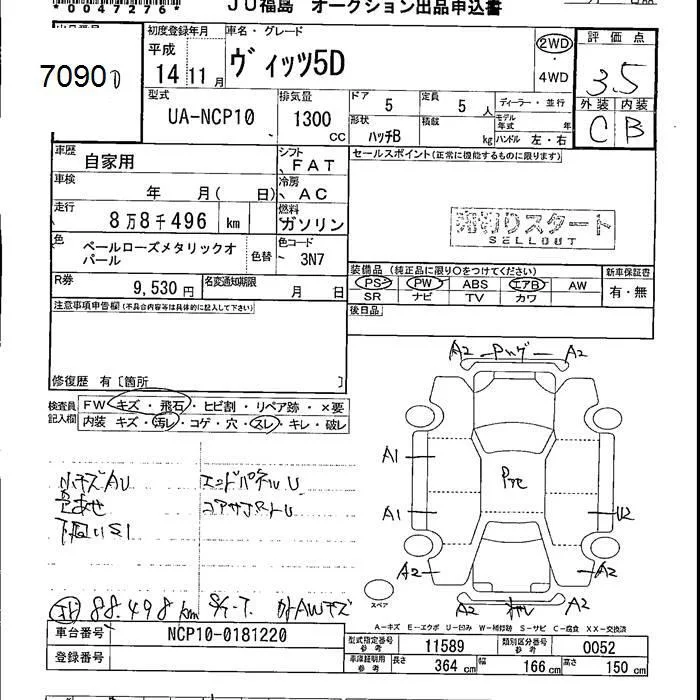 *0047276*
JU福島 オークション出品申込書
初度登録年月 車名・グレード
評価点
70901
平成
14 11月
ヴィッツ5D
2WD
4WD
3.5
外装 内装
C B
型式
UA-NCP10
排気量
1300 CC
ドア 5
定員 5人
ディーラー・並行
形状 ハッチB
積載 kg
モデル年式 年
ハンドル 左・右
車歴
自家用
シフト
FAT
セールスポイント(正常に機能するものに限ります)
車検
年 月( 日)
冷房
AC
走行
8万8千496 km
燃料
ガソリン
売切りスタート
SELLOUT
色
ペールローズメタリックオパール
色替
色コード
3N7
装備品(純正品に限り○をつけてください)
新車保証書
PS PW ABS エアB AW
SR ナビ TV カワ
有・無
R券
9,530円
名変通知期限
月 日
後日品
注意事項申告欄(不具合内容等は具体的に記入して下さい)
修復歴 有〔箇所 〕
検査員記入欄
FW キズ・飛石・ヒビ割・リペア跡・×要
内装 キズ・汚レ・コゲ・穴・スレ・キレ・破レ
A2 A2
A1
Pre
A1 U2
A2 A2
A2 A2
小キズAU エンドパネルU
色あせ コアサポートU
下回りS1
88.498km
スペア
A-キズ E-エクボ U-凹み W-補修跡 S-サビ C-腐食 XX-交換済
車台番号
NCP10-0181220
登録番号
型式指定番号 参考
11589
類別区分番号 参考
0052
車庫証明用 参考
長さ 364 cm
幅 166 cm
高さ 150 cm